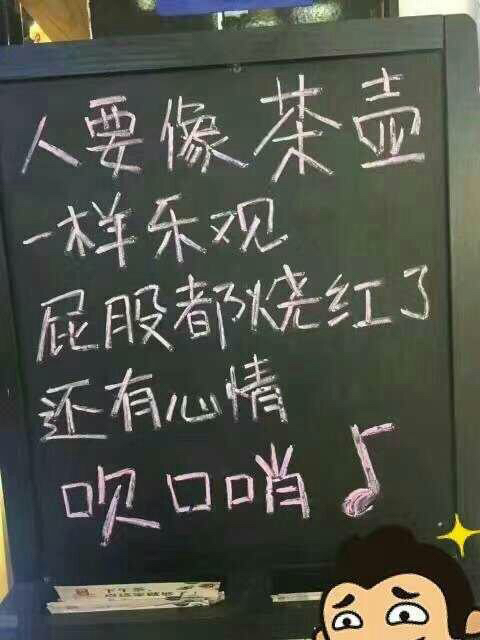 人要像茶壶
一样乐观
屁股都烧红了
还有心情
吹口哨
下午茶